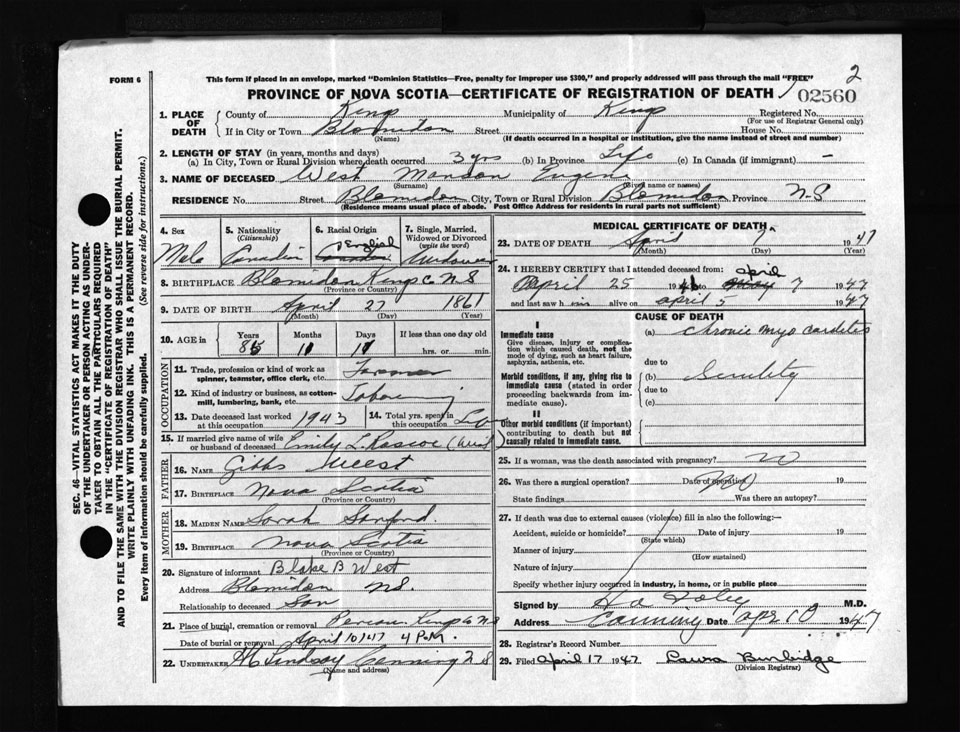 FORM 6
This form if placed in an envelope, marked "Dominion Statistics—Free, penalty for improper use $300," and properly addressed will pass through the mail "FREE"
2
PROVINCE OF NOVA SCOTIA—CERTIFICATE OF REGISTRATION OF DEATH
02560
1. PLACE OF DEATH
County of Kings Municipality of Kings Registered No.
(For use of Registrar General only)
If in City or Town Blomidon Street House No.
(Name) (If death occurred in a hospital or institution, give the name instead of street and number)
2. LENGTH OF STAY (in years, months and days)
(a) In City, Town or Rural Division where death occurred 3 yrs (b) In Province Life (c) In Canada (if immigrant) —
3. NAME OF DECEASED West Manson Eugene
(Surname) (Given name or names)
RESIDENCE No. Street Blomidon City, Town or Rural Division Blomidon Province N.S
(Residence means usual place of abode. Post Office Address for residents in rural parts not sufficient)
4. Sex Male
5. Nationality (Citizenship) Canadian
6. Racial Origin English Canadian
7. Single, Married, Widowed or Divorced (write the word) Widower
8. BIRTHPLACE Blomidon Kings Co N S
(Province or Country)
9. DATE OF BIRTH April 27 1861
(Month) (Day) (Year)
10. AGE in Years 85 Months 11 Days 11 If less than one day old hrs. or min.
OCCUPATION
11. Trade, profession or kind of work as spinner, teamster, office clerk, etc. Farmer
12. Kind of industry or business, as cotton-mill, lumbering, bank, etc.
13. Date deceased last worked at this occupation 1943
14. Total yrs. spent in this occupation Life
15. If married give name of wife or husband of deceased Emily L. Rascoe (West)
FATHER
16. NAME Gibbs West
17. BIRTHPLACE Nova Scotia
(Province or Country)
MOTHER
18. MAIDEN NAME Sarah Sanford
19. BIRTHPLACE Nova Scotia
(Province or Country)
20. Signature of informant Blake B West
Address Blomidon N.S.
Relationship to deceased Son
21. Place of burial, cremation or removal Pereau Kings Co N S
Date of burial or removal April 10/47 4 P.M.
22. UNDERTAKER Lindsay Canning N S
(Name and address)
MEDICAL CERTIFICATE OF DEATH
23. DATE OF DEATH April 7 1947
(Month) (Day) (Year)
24. I HEREBY CERTIFY that I attended deceased from:
April 25 1946 to April 7 1947
and last saw him alive on April 5 1947
CAUSE OF DEATH
I
Immediate cause
Give disease, injury or complication which caused death, not the mode of dying, such as heart failure, asphyxia, asthenia, etc.
(a) Chronic Myocarditis
due to
Morbid conditions, if any, giving rise to immediate cause (stated in order proceeding backwards from immediate cause).
(b) Senility
due to
(c)
II
Other morbid conditions (if important) contributing to death but not causally related to immediate cause.
25. If a woman, was the death associated with pregnancy? No
26. Was there a surgical operation? No Date of operation 19
State findings Was there an autopsy?
27. If death was due to external causes (violence) fill in also the following:—
Accident, suicide or homicide? Date of injury 19
(State which)
Manner of injury
(How sustained)
Nature of injury
Specify whether injury occurred in industry, in home, or in public place
Signed by M.D.
Address Canning Date Apr 10 1947
28. Registrar's Record Number
29. Filed April 17 1947 Laura Burbidge
(Division Registrar)
SEC. 46—VITAL STATISTICS ACT MAKES IT THE DUTY
OF THE UNDERTAKER OR PERSON ACTING AS UNDERTAKER
TO OBTAIN ALL THE PARTICULARS REQUIRED
IN THE "CERTIFICATE OF REGISTRATION OF DEATH"
AND TO FILE THE SAME WITH THE DIVISION REGISTRAR WHO SHALL ISSUE THE BURIAL PERMIT.
WRITE PLAINLY WITH UNFADING INK. THIS IS A PERMANENT RECORD.
Every item of information should be carefully supplied. (See reverse side for instructions.)